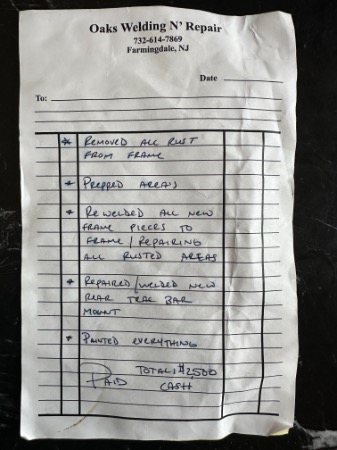 Oaks Welding N' Repair
732-614-7869
Farmingdale, NJ
Date
To:
* Removed all rust
from frame
* Prepped area's
* Rewelded all new
frame pieces to
frame/repairing
all rusted areas
* Repaired/welded new
rear trac bar
mount
* Painted everything
Total: $2500
Paid cash